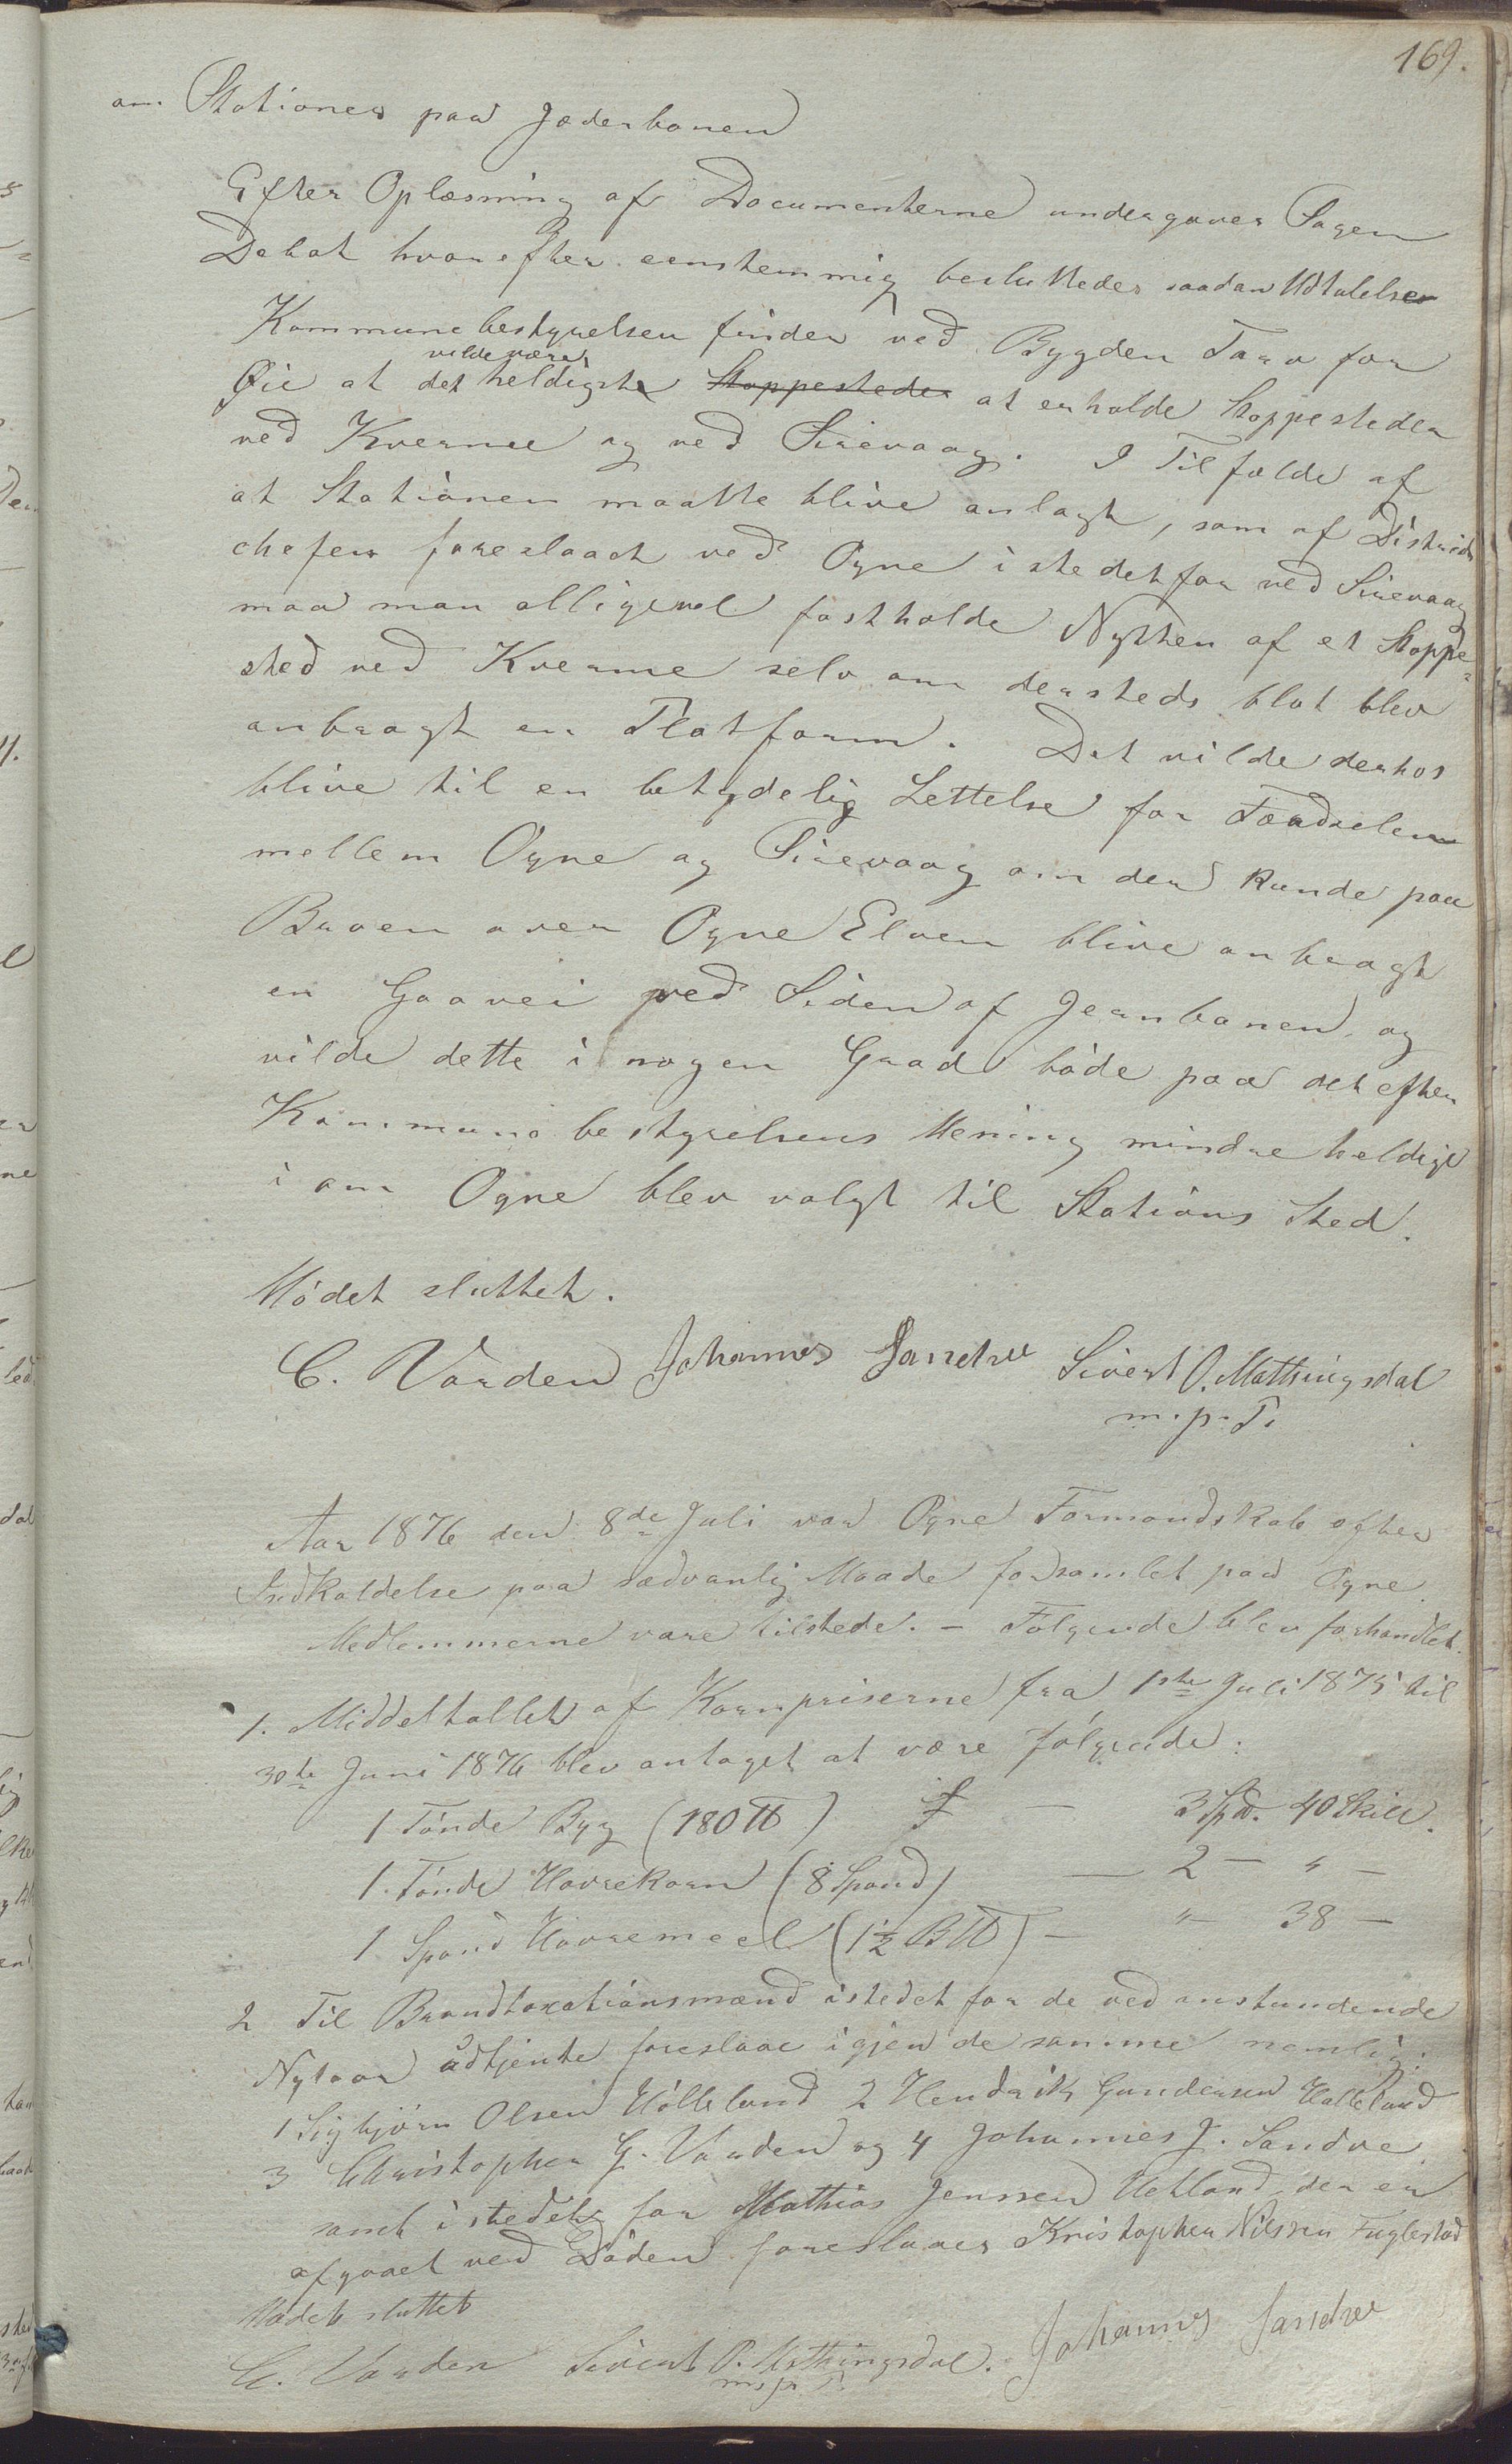 169.
om Stationer paa Jæderbanen
Efter Oplæsning af Documenterne undergaves Sagen
Debat hvorefter eenstemmig besluttedes saadan Udtalelse
Kommunebestyrelsen finder ved Bygdens Tarv for
vilde være
Øie at det heldigste Stoppesteder at erholde Stoppesteder
ved Kverme og ved Sirevaag. I Tilfælde af
at Stationen maatte blive anlagt, som af Distrikts
chefen foreslaaet ved Ogne istedetfor ved Sirevaag
maa man alligevel fastholde Nytten af et Stoppe-
sted ved Kverme selv om dersteds blot blev
anbragt en Platform. Det vilde derhos
blive til en betydelig Lettelse for Færdselen
mellem Ogne og Sirevaag om der kunde paa
Broen over Ogne Elven blive anbragt
en Gaavei ved Siden af Jernbanen og
vilde dette i nogen Grad bøde paa det efter
Kommunebestyrelsens Mening mindre heldige
i om Ogne blev valgt til Stations Sted.
Mødet sluttet.
C. Varden Johannes Sandve Sivert O. Mathingsdal
m. p. P.
Aar 1876 den 8de Juli var Ogne Formandskab efter
Indkaldelse paa sædvanlig Maade forsamlet paa Ogne
Medlemmerne vare tilstede. - Følgende blev forhandlet.
1. Middeltallet af Kornpriserne fra 1ste Juli 1875 til
30te Juni 1876 blev antaget at være følgende:
1 Tønde Byg (180 ℔) — 3 Spd. 40 Skill.
1 Tønde Havrekorn (8 Spand) — 2 — " —
1 Spand Havremeel (1½ B℔) — " — 38 —
2 Til Brandtaxationsmænd istedet for de ved anstundende
Nytaar udtjente foreslaae igjen de samme nemlig:
1 Sigbjørn Olsen Hølland 2 Hendrik Gundersen Hølland
3 Christopher G. Varden og 4 Johannes J. Sandve
samt istedet for Mathias Jenssen Uehland der er
afgaaet ved Døden foreslaaes Kristopher Nilssen Fuglestad
Mødet sluttet
C. Varden Sivert O. Mathingsdal. Johannes Sandve
m. p. P.